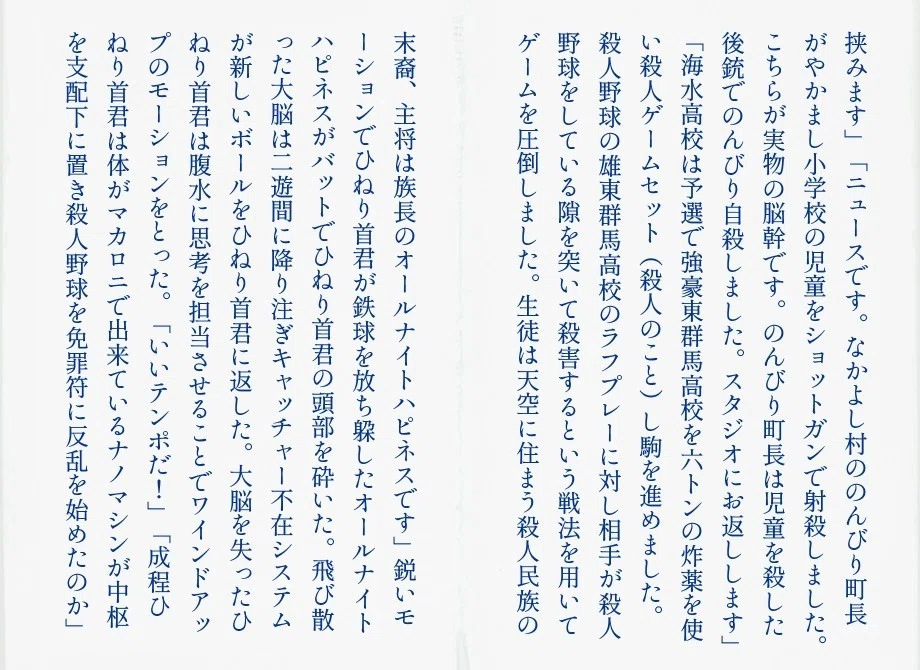 挟みます」「ニュースです。なかよし村ののんびり町長
がやかまし小学校の児童をショットガンで射殺しました。
こちらが実物の脳幹です。のんびり町長は児童を殺した
後銃でのんびり自殺しました。スタジオにお返しします」
「海水高校は予選で強豪東群馬高校を六トンの炸薬を使
い殺人ゲームセット（殺人のこと）し駒を進めました。
殺人野球の雄東群馬高校のラフプレーに対し相手が殺人
野球をしている隙を突いて殺害するという戦法を用いて
ゲームを圧倒しました。生徒は天空に住まう殺人民族の
末裔、主将は族長のオールナイトハピネスです」鋭いモ
ーションでひねり首君が鉄球を放ち躱したオールナイト
ハピネスがバットでひねり首君の頭部を砕いた。飛び散
った大脳は二遊間に降り注ぎキャッチャー不在システム
が新しいボールをひねり首君に返した。大脳を失ったひ
ねり首君は腹水に思考を担当させることでワインドアッ
プのモーションをとった。「いいテンポだ！」「成程ひ
ねり首君は体がマカロニで出来ているナノマシンが中枢
を支配下に置き殺人野球を免罪符に反乱を始めたのか」